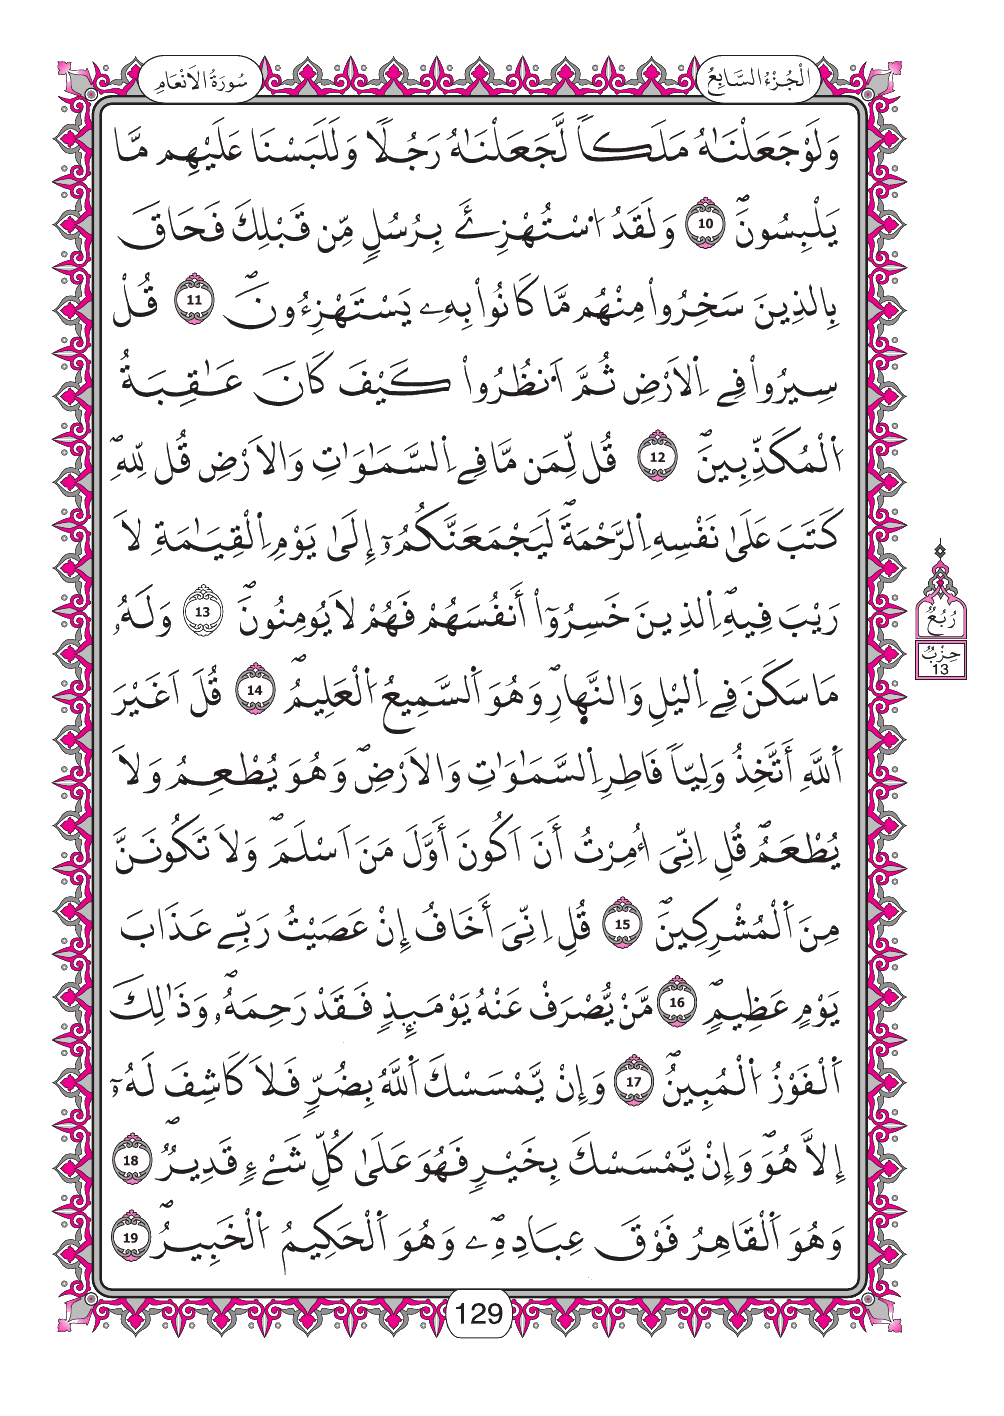 الْجُزْءُ السَّابِعُ
سُورَةُ الَانْعَامِ
وَلَوْ جَعَلْنَٰهُ مَلَكاٗ لَّجَعَلْنَٰهُ رَجُلٗا وَلَلَبَسْنَا عَلَيْهِم مَّا
يَلْبِسُونَۖ 10 وَلَقَدُ اِ۟سْتُهْزِۓَ بِرُسُلٖ مِّن قَبْلِكَ فَحَاقَ
بِالذِينَ سَخِرُواْ مِنْهُم مَّا كَانُواْ بِهِۦ يَسْتَهْزِءُونَۖ 11 قُلْ
سِيرُواْ فِے اِ۬لَارْضِ ثُمَّ اَ۟نظُرُواْ كَيْفَ كَانَ عَٰقِبَةُ
اُ۬لْمُكَذِّبِينَۖ 12 قُل لِّمَن مَّا فِے اِ۬لسَّمَٰوَٰتِ وَالَارْضِ قُل لِّلهِۖ
كَتَبَ عَلَىٰ نَفْسِهِ اِ۬لرَّحْمَةَۖ لَيَجْمَعَنَّكُمُۥٓ إِلَىٰ يَوْمِ اِ۬لْقِيَٰمَةِ لَا
رَيْبَ فِيهِۖ اِ۬لذِينَ خَسِرُوٓاْ أَنفُسَهُمْ فَهُمْ لَا يُومِنُونَۖ 13 وَلَهُۥ
مَا سَكَنَ فِے اِ۬ليْلِ وَالنَّه۪ارِۖ وَهُوَ اَ۬لسَّمِيعُ اُ۬لْعَلِيمُۖ 14 قُلَ اَغَيْرَ
اَ۬للَّهِ أَتَّخِذُ وَلِيّاٗ فَاطِرِ اِ۬لسَّمَٰوَٰتِ وَالَارْضِۖ وَهُوَ يُطْعِمُ وَلَا
يُطْعَمُۖ قُلِ اِنِّىَ أُمِرْتُ أَنَ اَكُونَ أَوَّلَ مَنَ اَسْلَمَۖ وَلَا تَكُونَنَّ
مِنَ اَ۬لْمُشْرِكِينَۖ 15 قُلِ اِنِّىَ أَخَافُ إِنْ عَصَيْتُ رَبِّے عَذَابَ
يَوْمٍ عَظِيمٖۖ 16 مَّنْ يُّصْرَفْ عَنْهُ يَوْمَئِذٖ فَقَدْ رَحِمَهُۥۖ وَذَٰلِكَ
اَ۬لْفَوْزُ اُ۬لْمُبِينُۖ 17 وَإِنْ يَّمْسَسْكَ اَ۬للَّهُ بِضُرّٖ فَلَا كَاشِفَ لَهُۥٓ
إِلَّا هُوَۖ وَإِنْ يَّمْسَسْكَ بِخَيْرٖ فَهُوَ عَلَىٰ كُلِّ شَےْءٖ قَدِيرٞۖ 18
وَهُوَ اَ۬لْقَاهِرُ فَوْقَ عِبَادِهِۦۖ وَهُوَ اَ۬لْحَكِيمُ اُ۬لْخَبِيرُۖ 19
رُبُعُ
حِزْبٌ
13
129